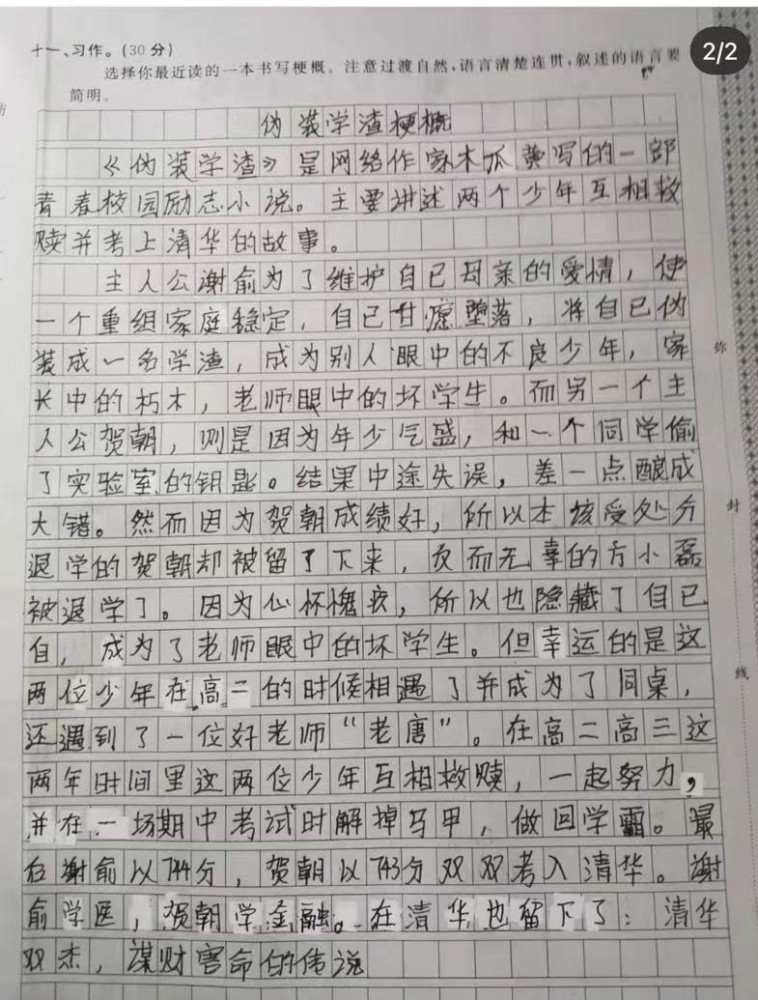 2/2
十一、习作。(30分)
选择你最近读的一本书写梗概。注意过渡自然,语言清楚连贯,叙述的语言要
简明。
伪装学渣梗概
《伪装学渣》是网络作家木瓜黄写的一部
青春校园励志小说。主要讲述两个少年互相救
赎并考上清华的故事。
主人公谢俞为了维护自己母亲的爱情,使
一个重组家庭稳定,自己甘愿堕落,将自己伪
装成一名学渣,成为别人眼中的不良少年,家
长中的朽木,老师眼中的坏学生。而另一个主
人公贺朝,则是因为年少气盛,和一个同学偷
了实验室的钥匙。结果中途失误,差一点酿成
大错。然而因为贺朝成绩好,所以本该受处分
退学的贺朝却被留了下来,反而无辜的方小磊
被退学了。因为心怀愧疚,所以也隐藏了自己
自,成为了老师眼中的坏学生。但幸运的是这
两位少年在高二的时候相遇了并成为了同桌,
还遇到了一位好老师“老唐”。在高二高三这
两年时间里这两位少年互相救赎,一起努力,
并在一场期中考试时解掉马甲,做回学霸。最
后谢俞以744分,贺朝以743分双双考入清华。谢
俞学医,贺朝学金融。在清华也留下了:清华
双杰,谋财害命的传说
你
封
线